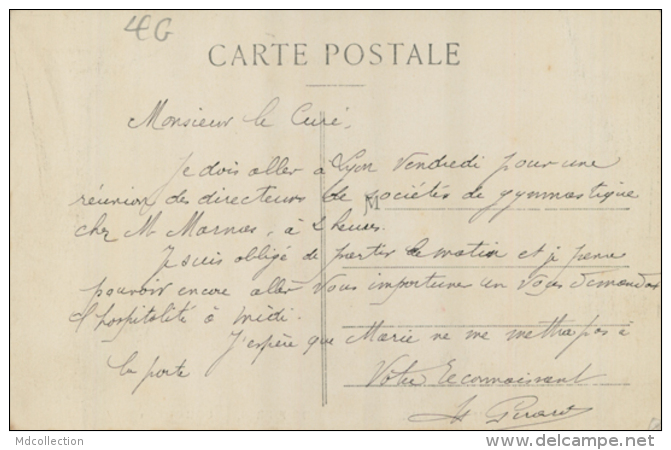 4G
CARTE POSTALE
Monsieur le Curé,
Je dois aller à Lyon Vendredi pour une
réunion des directeurs de sociétés de gymnastique
M
chez M. Marnas, à 2 heures.
Je suis obligé de partir le matin et je pense
pouvoir encore aller vous importuner en vous demandant
l'hospitalité à midi.
J'espère que Marie ne me mettra pas à
la porte
Votre Reconnaissant
Mdcollection
delcampe.net